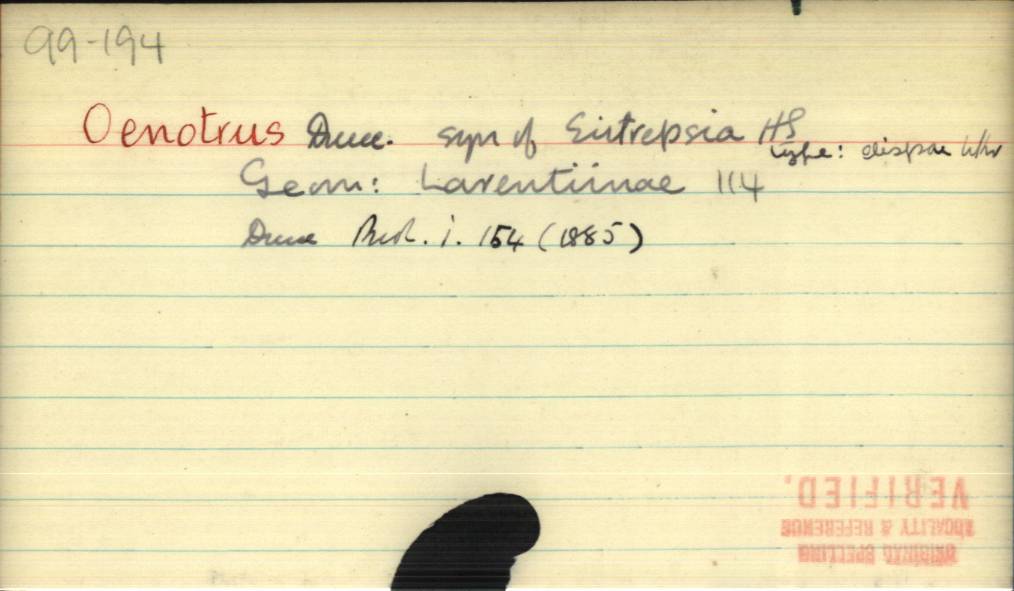 99-194
Oenotrus Druce. syn of Eutrepsia HS
type: dispar Wkr
Geom: Larentiinae 114
Druce Biol. i. 154 (1885)
VERIFIED.
LOCALITY & REFERENCE
ORIGINAL SPELLING